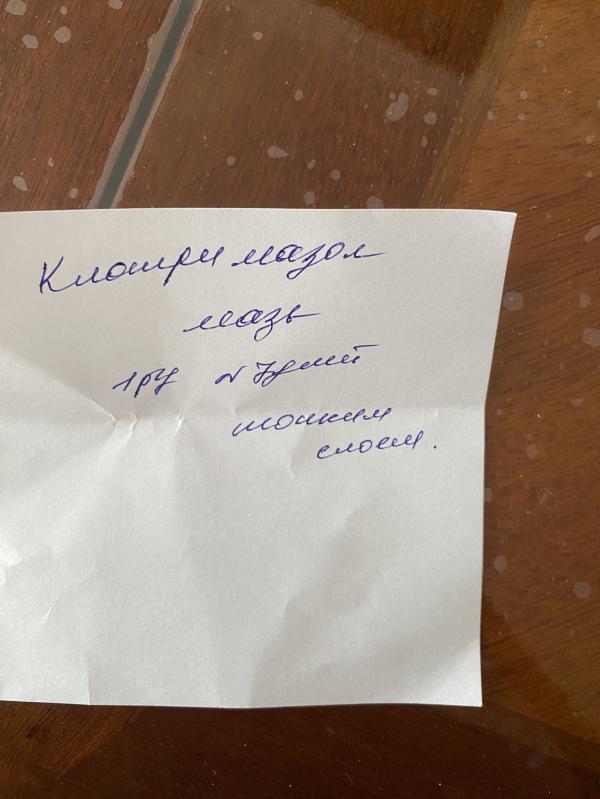 Клотримазол
мазь
1р/д ~ 7 дней
тонким
слоем.